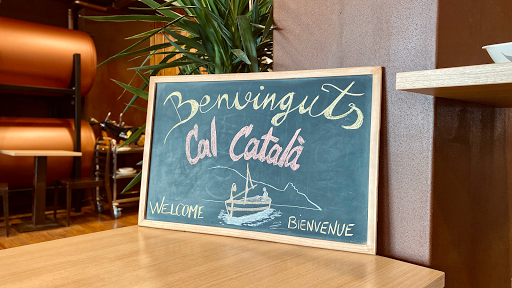 Benvinguts
Cal Català
WELCOME
BIENVENUE